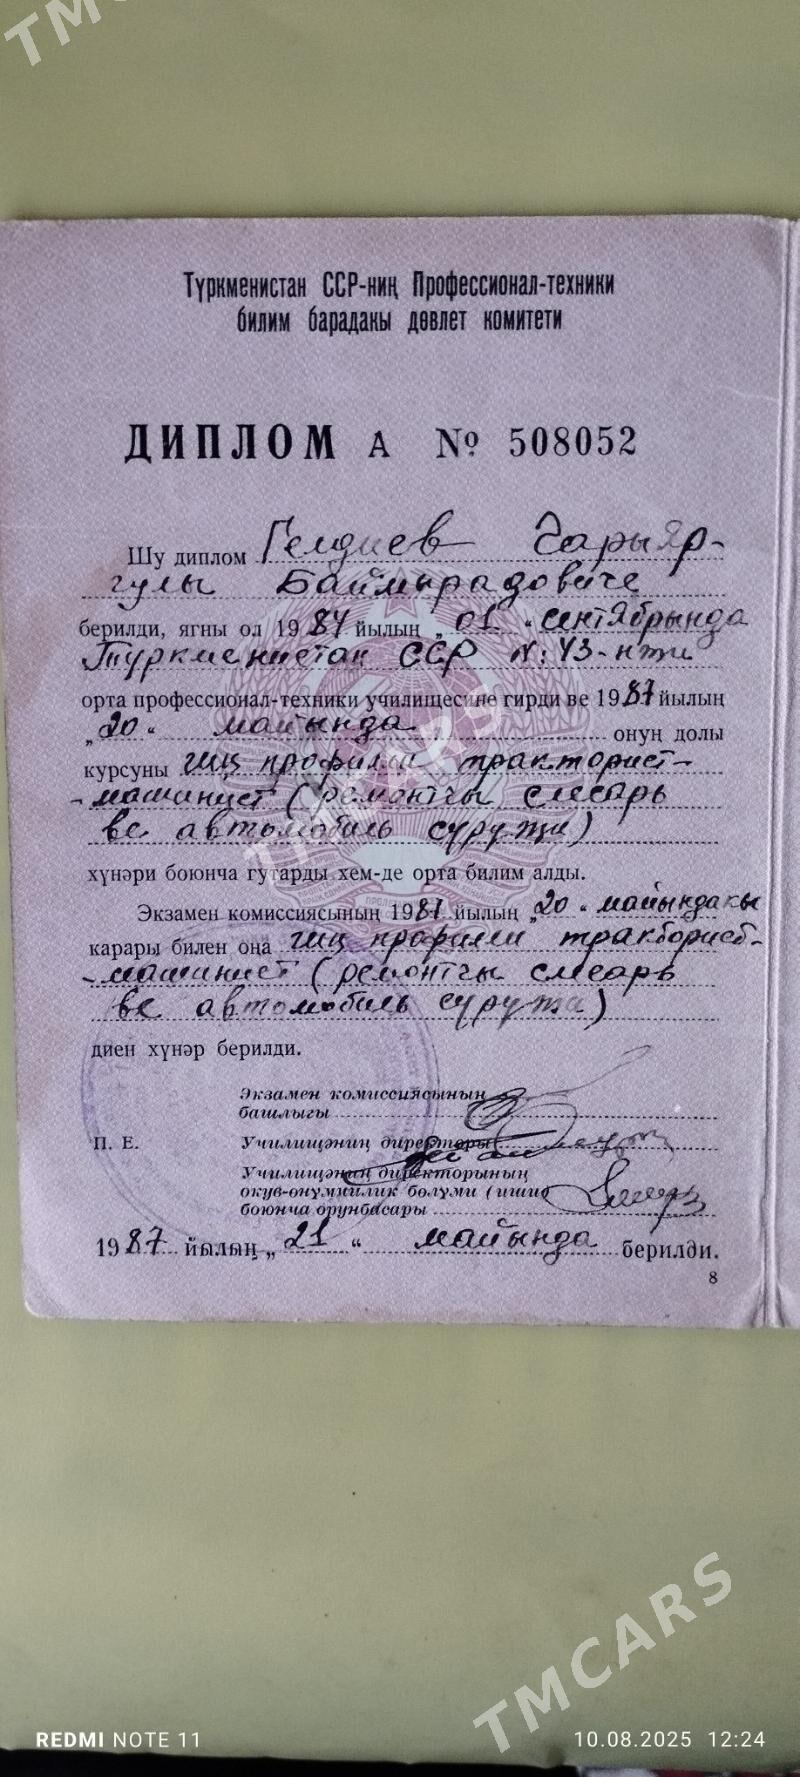 TMCARS
Түркменистан ССР-ниң Профессионал-техники
билим барадакы дөвлет комитети
ДИПЛОМ А № 508052
Шу диплом Гелдиев Гарыяр-
гулы Баймырадовиче
берилди, ягны ол 1984 йылың „01“ сентябрында
Туркменистан ССР №: 43-нжи
орта профессионал-техники училищесине гирди ве 1987 йылың
„20“ майында онуң долы
курсуны гиң профилли тракторист-
-машинист (ремонтчы слесарь
ве автомобиль суружи)
хүнәри боюнча гутарды хем-де орта билим алды.
Экзамен комиссиясының 1987 йылың „20“ майындакы
карары билен оңа гиң профилли тракторист-
-машинист (ремонтчы слесарь
ве автомобиль суружи)
диен хүнәр берилди.
Экзамен комиссиясының
башлыгы
П. Е. Училищәниң директоры
Училищәниң директорының
окув-өнүмчилик бөлүми (иши)
боюнча орунбасары
1987 йылың „21“ майында берилди.
8
TMCARS
TMCARS
REDMI NOTE 11 10.08.2025 12:24